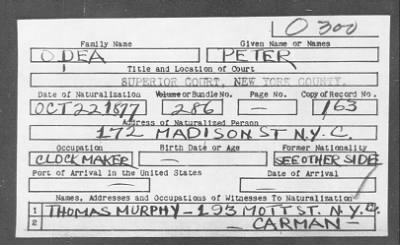 O 300
Family Name Given Name or Names
O'DEA PETER
Title and Location of Court
SUPERIOR COURT, NEW YORK COUNTY.
Date of Naturalization Volume or Bundle No. Page No. Copy of Record No.
OCT 22 1877 286 — 163
Address of Naturalized Person
172 MADISON ST N.Y.C.
Occupation Birth Date or Age Former Nationality
CLOCK MAKER — SEE OTHER SIDE
Port of Arrival in the United States Date of Arrival
— —
Names, Addresses and Occupations of Witnesses To Naturalization
1 THOMAS MURPHY — 193 MOTT ST. N.Y.C.
2 — CARMAN —